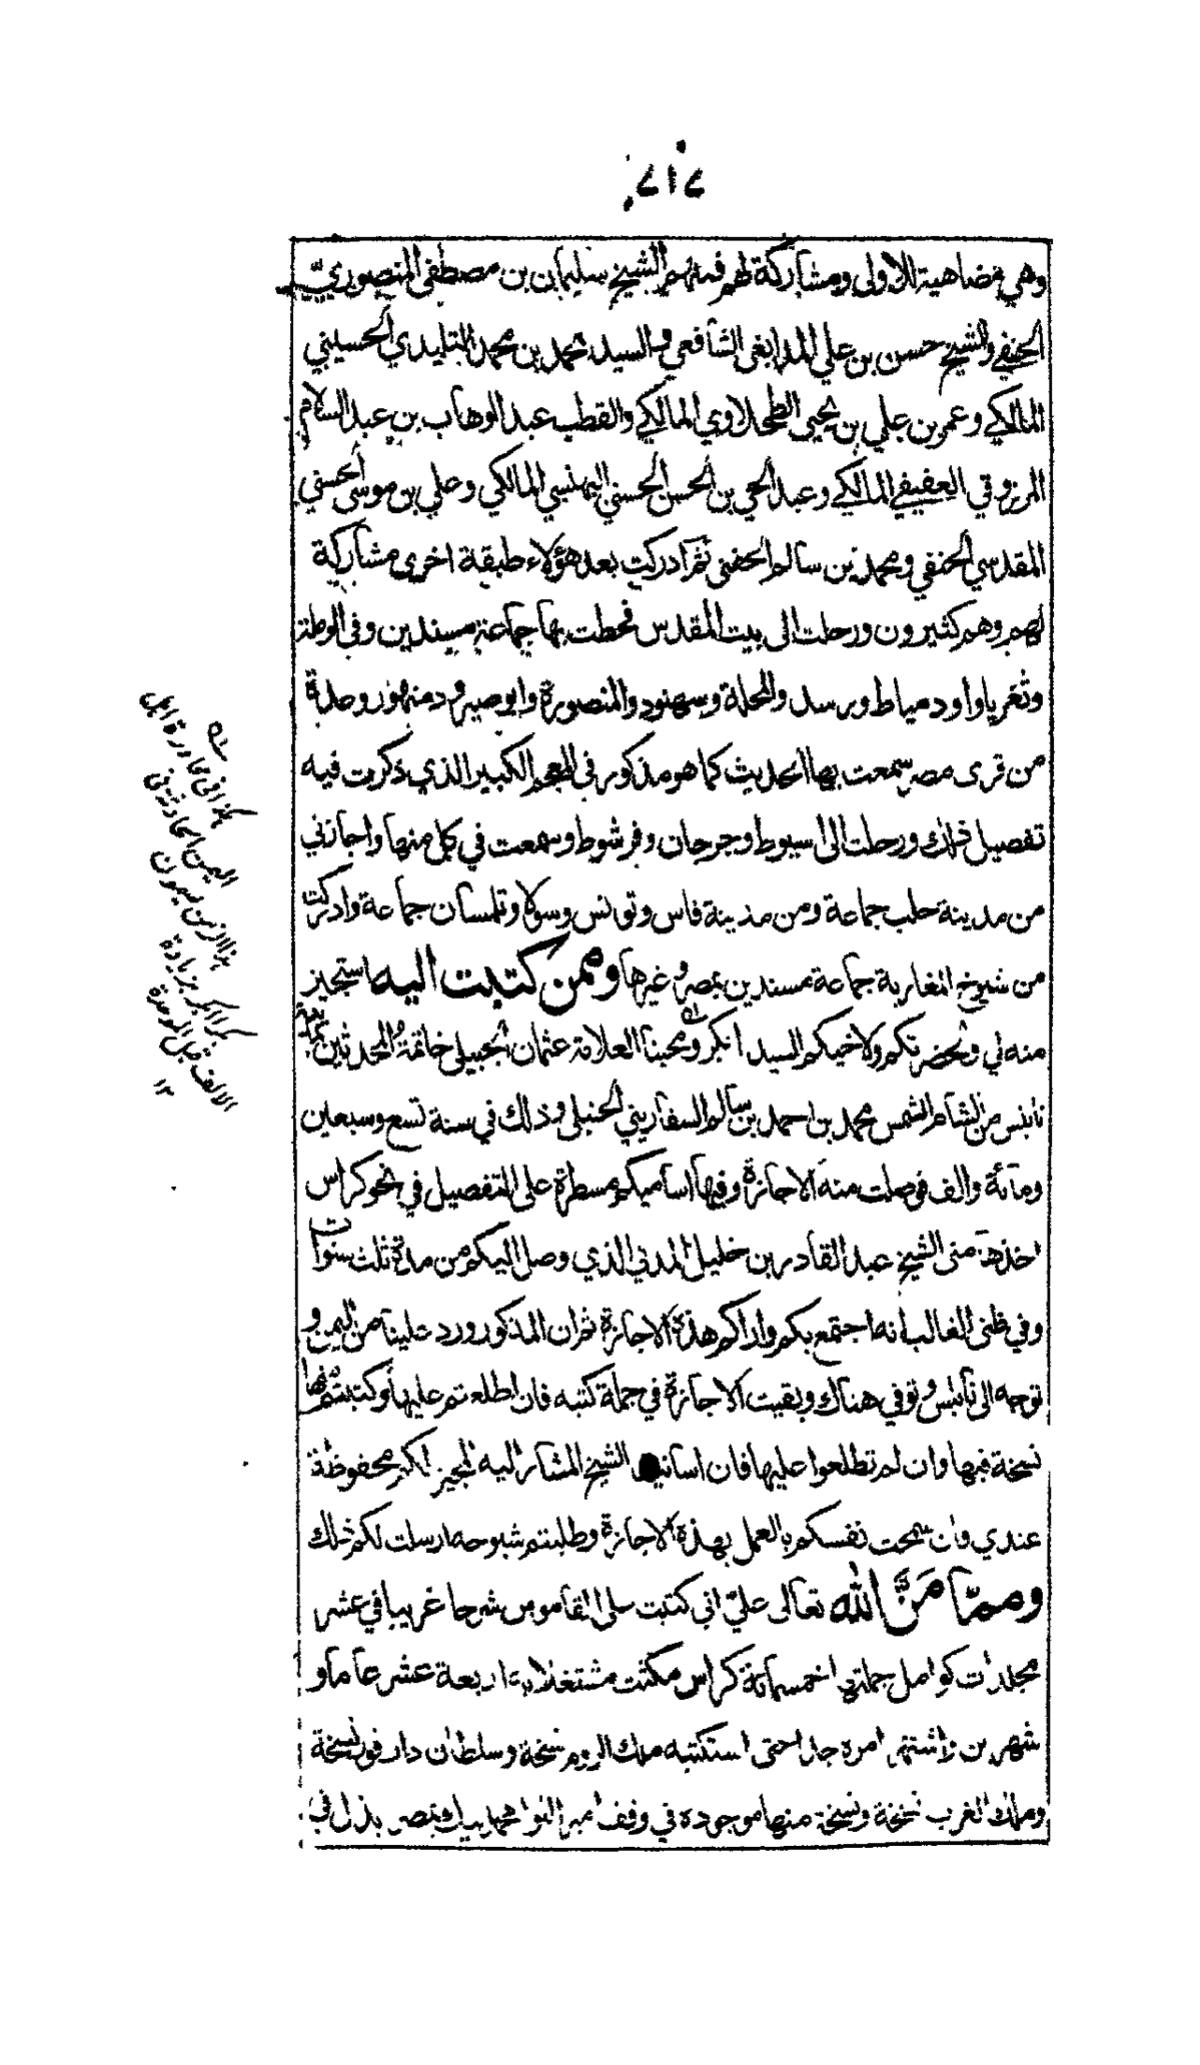 ٧١٧
وهي مضاهية للاولى ومشاركة لهم فمنهم الشيخ سليمان بن مصطفى المنصوري
الحنفي والشيخ حسن بن علي المدابغي الشافعي والسيد محمد بن محمد التليدي الحسيني
المالكي وعمر بن علي بن يحيى الطحلاوي المالكي والقطب عبد الوهاب بن عبد السلام
المرزوقي العفيفي المالكي وعبد الحي بن الحسن الحسني البهنسي المالكي وعلي بن موسى الحسني
المقدسي الحنفي ومحمد بن سالم الحفني ثم ادركت بعد هؤلاء طبقة اخرى مشاركة
لهم وهم كثيرون ورحلت الى بيت المقدس فحطت بها جماعة مسندين وفي الرملة
وثغر يافا ودمياط ورسد والمحلة وسمنود والمنصورة وابوصير ودمنهور وعدة
من قرى مصر سمعت بها الحديث كما هو مذكور في المعجم الكبير الذي ذكرت فيه
تفصيل ذلك ورحلت الى اسيوط وجرجان وفرشوط وسمعت في كل منها واجازني
من مدينة حلب جماعة ومن مدينة فاس وتونس وسولا وتلمسان جماعة وادركت
من شيوخ المغاربة جماعة مسندين بمصر وغيرها وممن كتبت اليه استجيز
منه لي ولحضرتكم ولاخيكم السيد ابكر ومحبنا العلامة عثمان الجبيلي خاتمة المحدثين
نابلس من الشام الشمس محمد بن احمد بن سالم السفاريني الحنبلي وذلك في سنة تسع وسبعين
ومائة والف فوصلت منه الاجازة وفيها اساميكم مسطرة على التفصيل في نحو كراس
اخذها مني الشيخ عبد القادر بن خليل المدني الذي وصل اليكم من مدة ثلث سنوات
وفي ظني الغالب انه اجتمع بكم واراكم هذه الاجازة ثم ان المذكور ورد علينا من اليمن و
توجه الى نابلس وتوفي هناك وبقيت الاجازة في جملة كتبه فان اطلعتم عليها وكتبتم منها
نسخة فبها وان لم تطلعوا عليها فان اسانيد الشيخ المشار اليه المجيز لكم محفوظة
عندي وان سمحت نفسكم بالعمل بهذه الاجازة وطلبتم شيوخه ارسلت لكم ذلك
ومما مَنَّ الله تعالى عليّ اني كتبت على القاموس شرحا غريبا في عشر
مجلدات كوامل جملتها خمسمائة كراس مكثت مشتغلا به اربعة عشر عاما و
شهرين واشتهر امره جدا حتى استكتبه ملك الروم نسخة وسلطان دارفور نسخة
وملك الغرب نسخة ونسخة منها موجودة في وقف امير اللواء محمد بيك بمصر بذل في